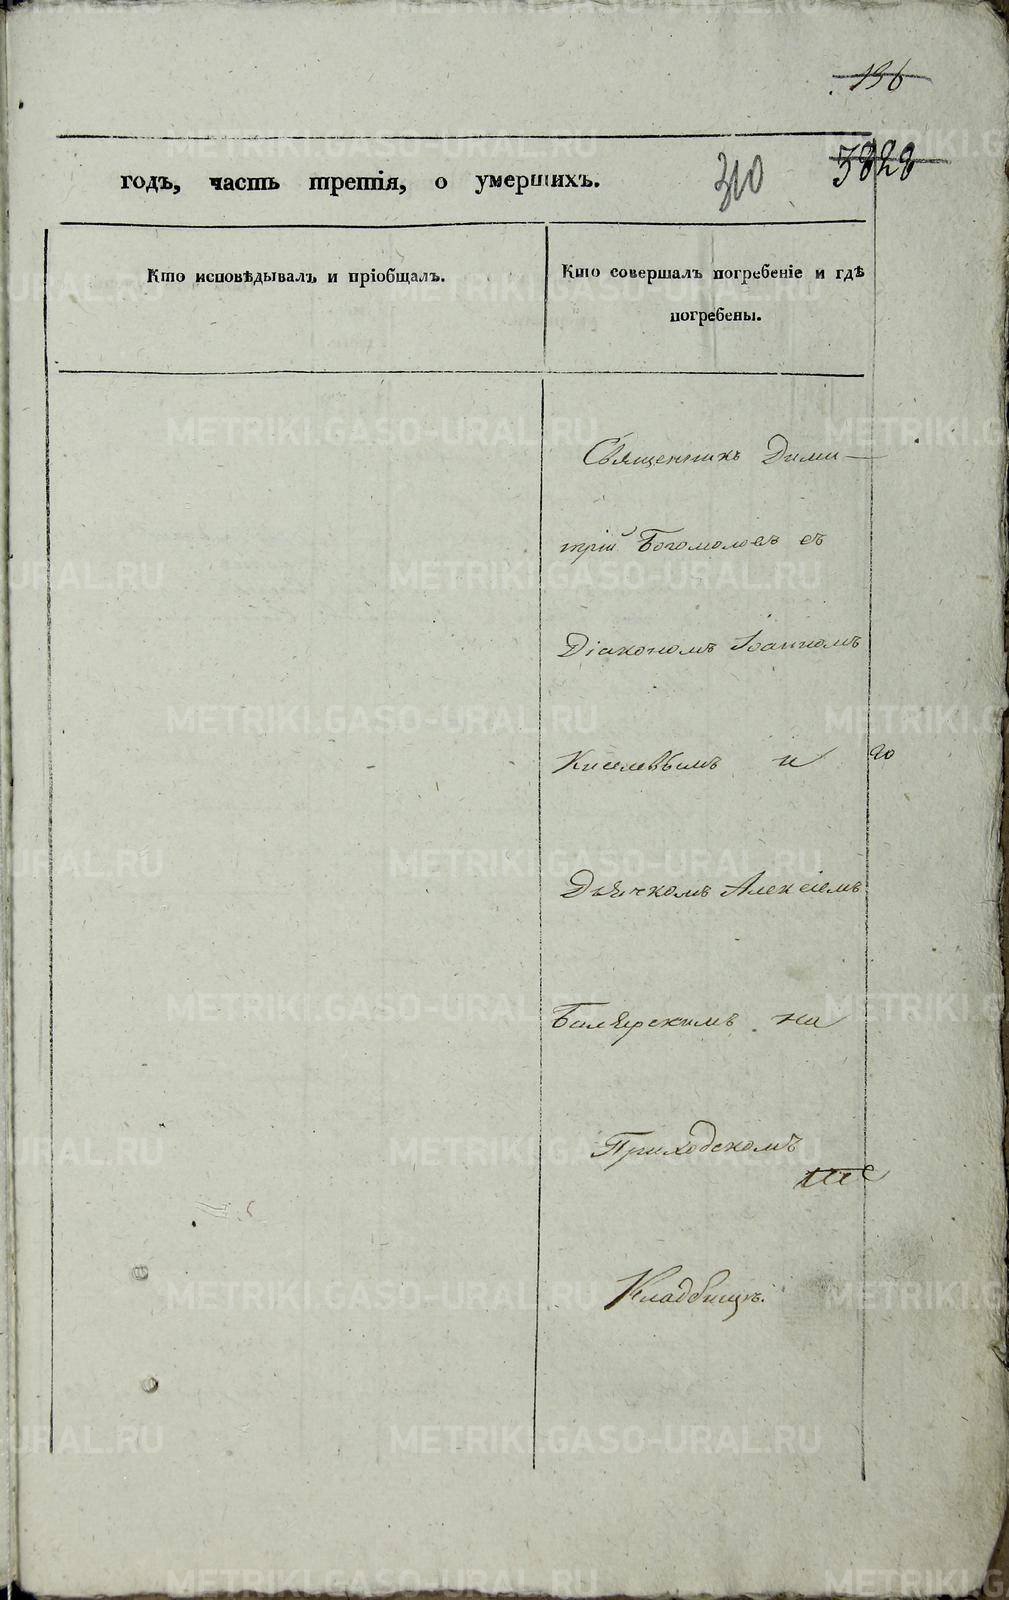 136
годъ, часть третія, о умершихъ.
310
Кто исповѣдывалъ и пріобщалъ.
Кто совершалъ погребеніе и гдѣ
погребены.
Священникъ Дими-
трій Богомоловъ съ
Діакономъ Іоанномъ
Киселевымъ и
20
Дьячкомъ Алексіемъ
на
Приходскомъ
Кладбищѣ.
METRIKI.GASO-URAL.RU